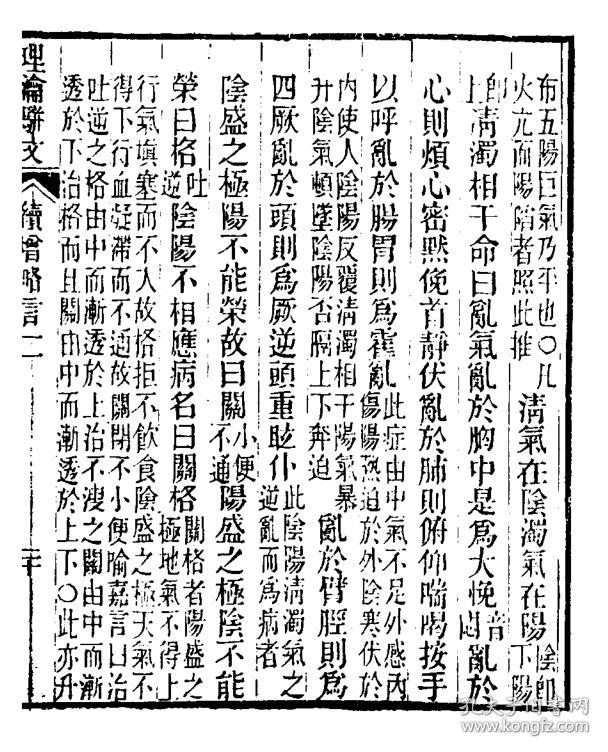 布五陽巨氣乃平也〇凡
火亢而陽陷者照此推
清氣在陰濁氣在陽
陰即
下陽
即
上
清濁相干命曰亂氣亂於胸中是爲大悗
音
悶
亂於
心則煩心密黙俛首靜伏亂於肺則俯仰喘喝按手
以呼亂於腸胃則爲霍亂
此症由中氣不足外感內
傷陽熱迫於外陰寒伏於
內使人陰陽反覆清濁相干陽氣暴
升陰氣頓墜陰陽否隔上下奔迫
亂於臂脛則爲
四厥亂於頭則爲厥逆頭重眩仆
此陰陽清濁氣之
逆亂而爲病者
陰盛之極陽不能榮故曰關
小便
不通
陽盛之極陰不能
榮曰格
吐
逆
陰陽不相應病名曰關格
關格者陽盛之
極地氣不得上
行氣塡塞而不入故格拒不飲食陰盛之極天氣不
得下行血凝滯而不通故關閉不小便喻嘉言曰治
吐逆之格由中而漸透於上治不溲之關由中而漸
透於下治格而且關由中而漸透於上下〇此亦升
理瀹駢文
續增略言
二十
孔夫子旧书网
www.kongfz.com